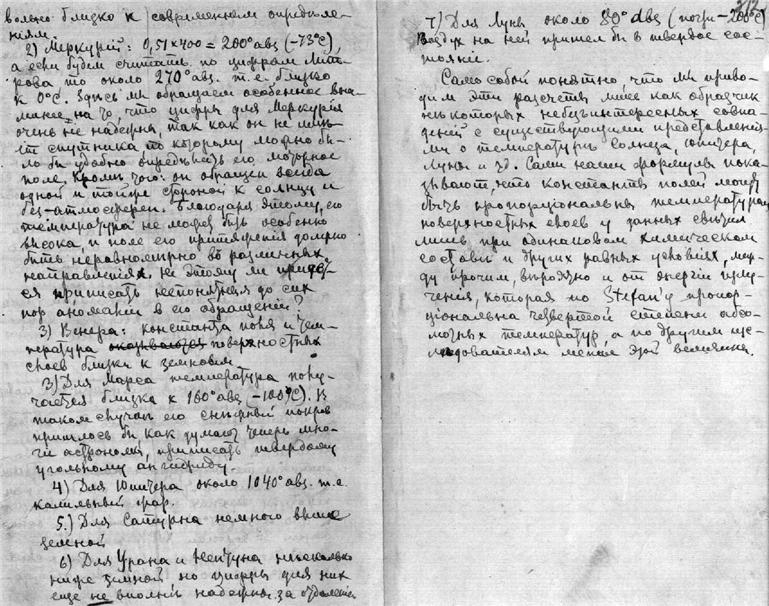 вольно близко к современнем опредѣле-
ніям.
2) Меркурій: 0,51 x 400 = 200° абз (-73°C),
а если будем считать по цифрам Лит-
рова то около 270° абз. т.е. близко
к 0°C. Здѣсь мы обращаем особенное вни-
манiе на то, что цифры для Меркурія
очень не надежны, так как он не имѣ-
ет спутника по которому можно бы-
ло бы удобно опредѣлить его моторное
поле, кромѣ того: он обращен всегда
одной и тойже стороной к солнцу и
без-атмосферен. Благодаря этому, его
температура не может быть особенно
высока, и поле его притяженія должно
быть неравномѣрно въ различных
направленіях. Не этому ли придет-
ся приписать непонятныя до сих
пор аномаліи в его обращеніи?
3) Венера: константа поля и тем-
пература поверхностных
слоев близки к земным.
3) Для Марса температура полу-
чается близка к 160° абз (-100°C). В
таком случаѣ его снѣжный покров
пришлось бы, как думают теперь мно-
гіе астрономы, приписать твердому
угольному ангидриду.
4) Для Юпитера около 1040° абз. т.е.
калильный жар.
5.) Для Сатурна немного выше
земной
6) Для Урана и Нептуна нѣсколько
ниже земной, но цифры для них
еще не вполнѣ надежны за
7) Для Луны около 80° абз (почти -200°C)
Воздух на ней пришел бы в твердое сос-
тояніе.
Само собой понятно, что мы приво-
дим эти расчеты лишь как образчик
нѣкоторых небезъинтересных совпа-
деній с существующими представленія-
ми о температурѣ солнца, Юпитера,
Луны и т.д. Сами наши формулы пока-
зывают, что константы полей могут
быть пропорціональны температурам
поверхностных слоев у данных свѣтил
лишь при одинаковом химическом
составѣ и других равных условіях, меж-
ду прочим, вѣроятно и от энергіи излу-
ченія, которая по Stefan'у пропор-
ціональна четвертой степени абсо-
лютных температур, а по другим ис-
слѣдователям меньше этой величины.